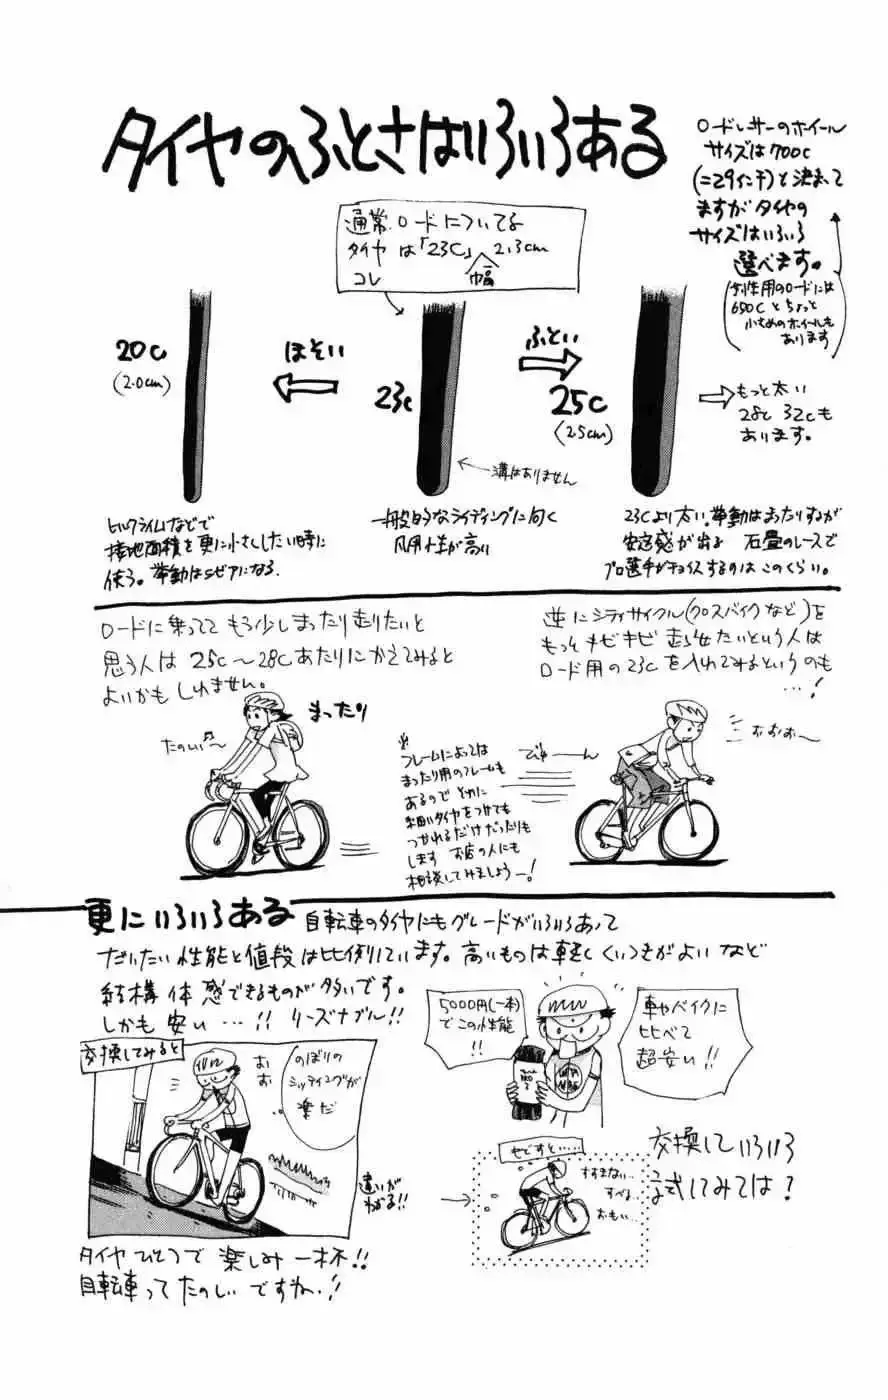 タイヤのふとさはいろいろある
ロードレーサーのホイール
サイズは700c
(=29インチ)と決まって
ますがタイヤの
サイズはいろいろ
選べます。
(女性用のロードには
650Cとちょっと
小さめのホイールも
あります)
通常ロードについてる
タイヤは「23C」 2.3cm
コレ 幅
20c
(2.0cm)
ほそい
23c
ふとい
25c
(2.5cm)
もっと太い
28c 32cも
あります。
溝はありません
ヒルクライムなどで
接地面積を更に小さくしたい時に
使う。挙動はシビアになる.
一般的なライディングに向く
汎用性が高い
23Cより太い。挙動はまったりするが
安定感が出る 石畳のレースで
プロ選手がチョイスするのはこのくらい。
ロードに乗ってて もう少しまったり走りたいと
思う人は 25c〜28cあたりにかえてみると
よいかもしれません。
逆にシティサイクル(クロスバイクなど)を
もっとキビキビ走らせたいという人は
ロード用の23cを入れてみるというのも
…!
まったり
たのしい〜
※フレームによっては
まったり用のフレームも
あるので それに
細いタイヤをつけても
つかれるだけだったりも
します お店の人にも
相談してみましょうー!
びゅーーん
おおお〜
更にいろいろある 自転車のタイヤにもグレードがいろいろあって
だいたい性能と値段は比例しています。高いものは軽くくいつきがよいなど
結構体感できるものが多いです。
しかも安い…!! リーズナブル!!
5000円(一本)
でこの性能
!!
車やバイクに
比べて
超安い!!
交換してみると
おお
のぼりの
シッティングが
楽だ
違いが
わかる!!
やせすと……
すすまない…
すべる…
おもい…
交換していろいろ
試してみては?
タイヤひとつで楽しみ一杯!!
自転車ってたのしいですね…!